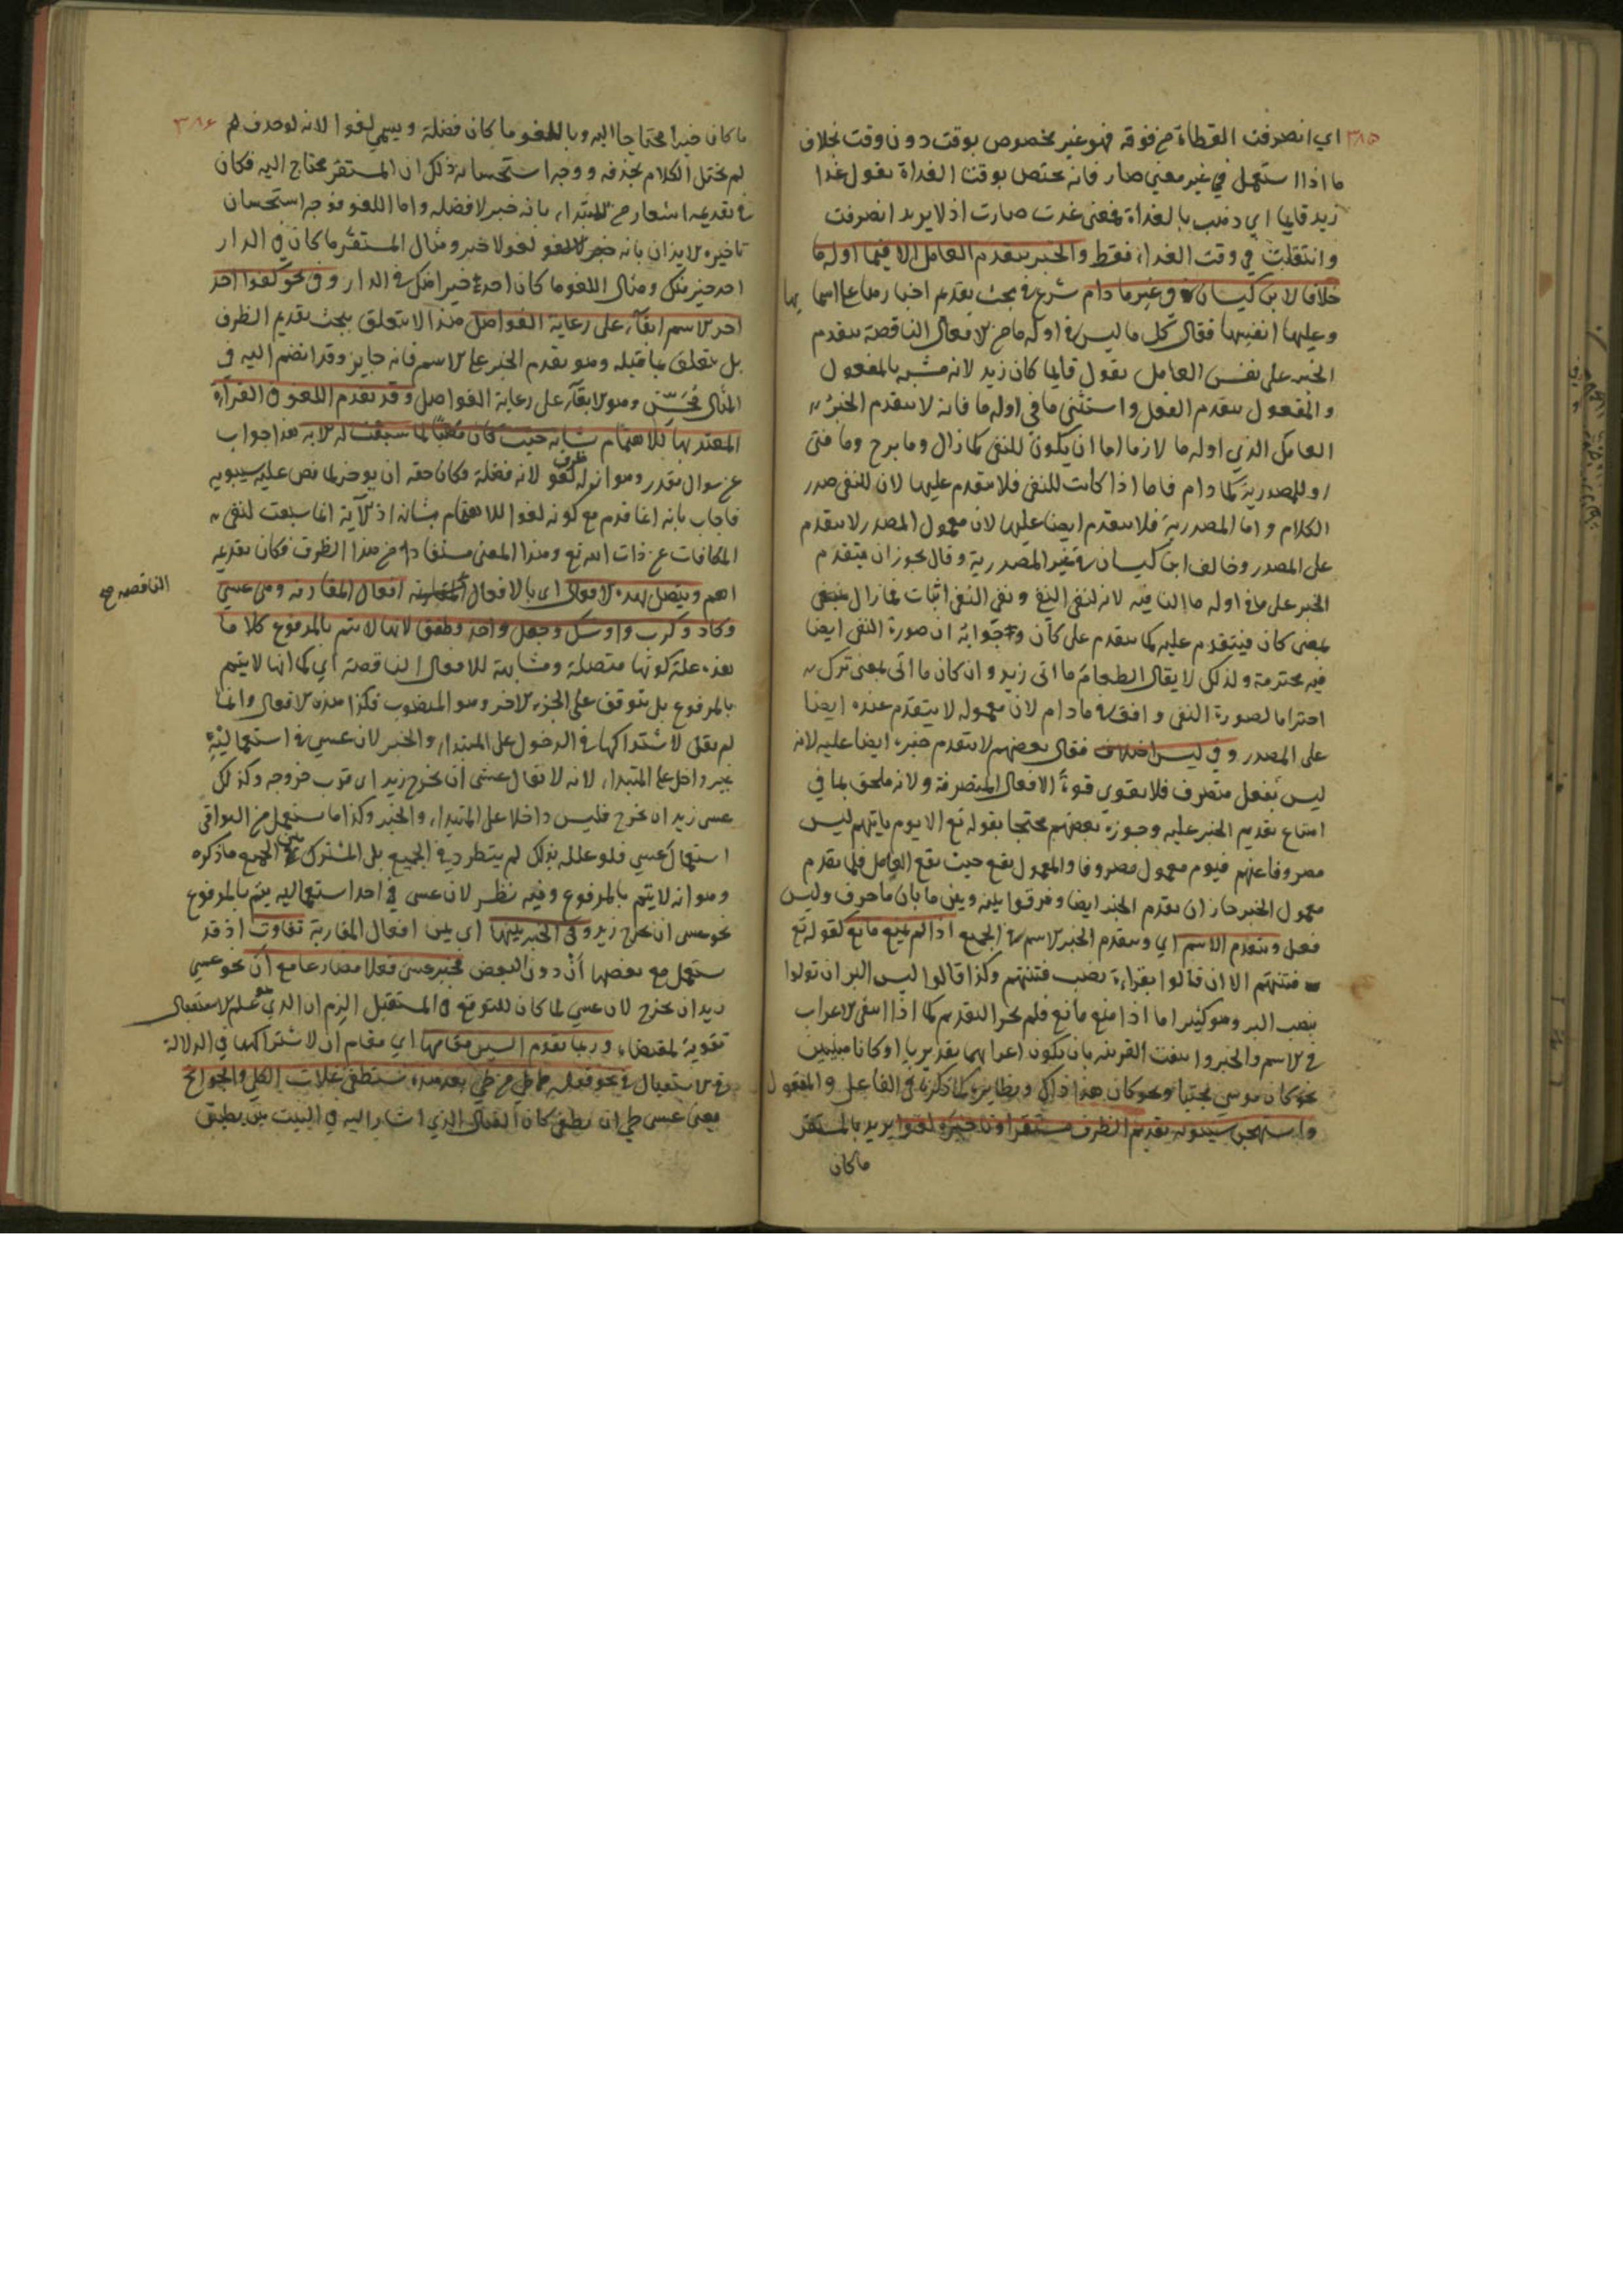 ٣٨٥
اي انصرفت القطاة من فوقه فهو غير مخصوص بوقت دون وقت بخلاف
ما اذا استعمل في غير معنى صار فانه يختص بوقت الغداة تقول غدا
زيد قايما اي ذهب بالغداة فمعنى غدت صارت اذ لا يريد انصرفت
وانتقلت في وقت الغداة فقط والخبر يتقدم العامل الا فيما اوله ما
خلافا لابن كيسان في غير ما دام شرع في بحث تقديم اخبارها على اسمائها
وعليها انفسها فقال كل ما ليس في اوله ما من الافعال الناقصة يتقدم
الخبر على نفس العامل تقول قايما كان زيد لانه مشبه بالمفعول
والمفعول يتقدم الفعل واستثنى ما في اوله ما فانه لا يتقدم الخبر
العامل الذي اوله ما لازما اما ان يكون للنفي كما زال وما برح وما فتى
او للمصدرية كما دام فاما اذا كانت للنفي فلا يتقدم عليها لان للنفي صدر
الكلام واما المصدرية فلا يتقدم ايضا عليها لان معمول المصدر لا يتقدم
على المصدر وخالف ابن كيسان في غير المصدرية وقال يجوز ان يتقدم
الخبر على ما في اوله ما النافية لانه لنفي النفي ونفي النفي اثبات فما زال
بمعنى كان فيتقدم عليه كما يتقدم على كان وجوابه ان صورة النفي ايضا
فيه محترمة ولذلك لا يقال الطعام ما اتى زيد وان كان ما اتى بمعنى ترك
احتراما لصورة النفي وافق في ما دام لان معموله لا يتقدم عنده ايضا
على المصدر وفي ليس اختلاف فقال بعضهم لا يتقدم خبره ايضا عليه لانه
ليس بفعل متصرف فلا يقوى قوة الافعال المتصرفة ولانه ملحق بما في
امتناع تقديم الخبر عليه وجوزه بعضهم محتجا بقوله تع الا يوم ياتيهم ليس
مصروفا عنهم فيوم معمول مصروفا والمعمول يقع حيث يقع العامل فلما تقدم
معمول الخبر جاز ان يتقدم الخبر ايضا وفرقوا بينه وبين ما بان ما حرف وليس
فعل ويتقدم الاسم اي ويتقدم الخبر الاسم في الجميع اذا لم يمنع مانع كقوله تع
فتنتهم الا ان قالوا بقراءة نصب فتنتهم وكذا قالوا ليس البر ان تولوا
بنصب البر وهو كثير اما اذا منع مانع فلم يجز التقديم كما اذا انتفى الاعراب
في الاسم والخبر وانتفت القرينة بان يكون اعرابهما تقديريا او كانا مبنيين
نحو كان موسى مجتبا ونحو كان هذا ذاك ونظايره كما ذكرنا في الفاعل والمفعول
واستهجن سيبويه تقديم الظرف مستقرا وتاخيره لغوا يريد بالمستقر
ما كان
٣٨٦
ما كان خبرا محتاجا اليه وباللغو ما كان فضلة ويسمى لغوا لانه لو حذف لم
لم يختل الكلام بحذفه ووجه استحسانه ذلك ان المستقر محتاج اليه فكان
في تقديمه اشعار من المبتداء بانه خبر لا فضله واما اللغو فوجه استحسان
تاخيره الايذان بانه لغو لا خبر ومثال المستقر ما كان في الدار
احد خير منك ومثال اللغو ما كان احد خيرا منك في الدار وفي نحو كفوا احد
اخر الاسم ابقاء على رعاية الفواصل هذا لا يتعلق ببحث تقديم الظرف
بل يتعلق بما قبله وهو تقدم الخبر على الاسم فانه جايز وقد انضم اليه في
المثال محسن وهو الابقاء على رعاية الفواصل وقد تقدم اللغو في القراءة
المعتد بها للاهتمام بشانه حيث كان لما سيقت له الاية هذا جواب
عن سوال يقدر وهو ان له ظرف لغو لانه فضلة وكان حقه ان يوخر لما نص عليه سيبويه
فاجاب بانه انما قدم مع كونه لغوا للاهتمام بشانه اذ الآية انما سيقت لنفي
المكافات عن ذات الله تع وهذا المعنى مستفاد من هذا الظرف فكان تقديمه
اهم ويتصل بهذه الافعال اي بالافعال الناقصة صح افعال المقاربة وهي عسى
وكاد وكرب واوشك وجعل واخذ وطفق لانها لا يتم بالمرفوع كلاما
هذه علة كونها متصلة ومشابهة للافعال الناقصة اي كما انها لا يتم
بالمرفوع بل يتوقف على الجزء الاخر وهو المنصوب فكذا هذه الافعال وانما
لم يقل لاشتراكها في الدخول على المبتداء والخبر لان عسى في استعماليه
غير داخل على المبتداء لانه لا يقال عسى ان يخرج زيد اي قرب خروجه وكذلك
عسى زيد ان يخرج فليس داخلا على المبتداء والخبر وكذا ما يستعمل من البواقي
استعمال عسى فلو علله بذلك لم يطرد في الجميع بل المشترك بين الجميع ما ذكره
وهو انه لا يتم بالمرفوع وفيه نظر لان عسى في احد استعماليه يتم بالمرفوع
نحو عسى ان يخرج زيد وفي الخبر بينها اي بين افعال المقاربة تفاوت اذ قد
يستعمل مع بعضها ان دون البعض فخبر عسى فعلا مضارعا مع ان نحو عسى
زيد ان يخرج لان عسى لما كان للتوقع في المستقبل الزم ان الذي هو علم الاستقبال
تقوية لمقتضاه وربما تقوم السين مقامها اي مقام ان لاشتراكهما في الدلالة
على الاستقبال في نحو قوله عسى طي من طي بعد هذه ستطفى غلات الكلى والجوانح
يعني عسى طي ان يطفي كان القتال الذي اشار اليه في البيت بين بطني